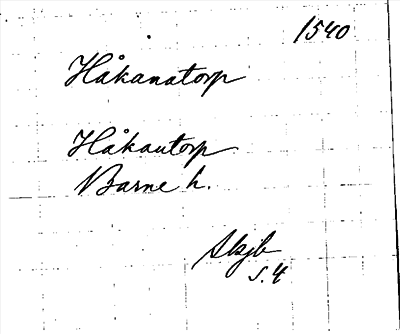 1540
Håkanatorp
Håkautorp
Barne h.
Skjb
s. 4